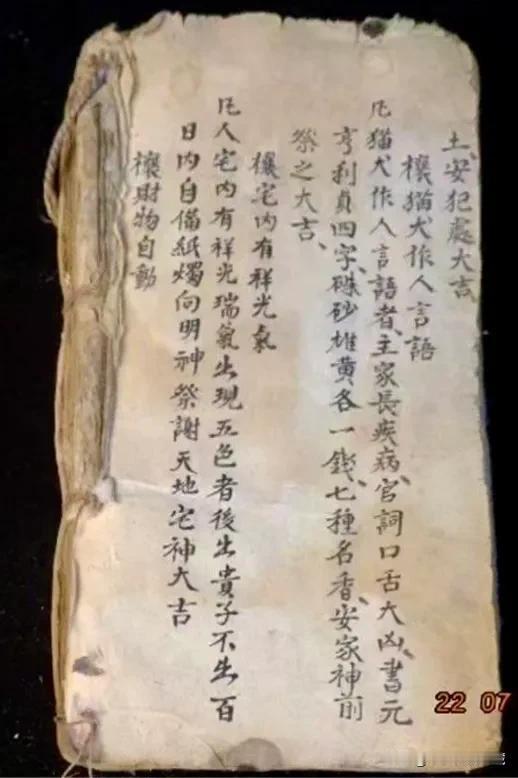 土、安犯處大吉
欀猫犬作人言語
凡猫犬作人言語者、主家長疾病、官詞口舌大凶、書元
亨利貞四字、硃砂雄黃各一錢、七種名香、安家神前
祭之大吉、
欀宅内有祥光氣
凡人宅内有祥光瑞氣出現五色者後出貴子不出百
日内自俻紙燭向明神祭謝天地宅神大吉
欀財物自動
22 07